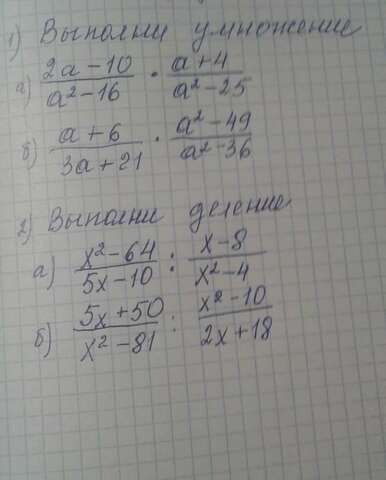 1) Выполни умножение
а) (2a-10)/(a²-16) · (a+4)/(a²-25)
б) (a+6)/(3a+21) · (a²-49)/(a²-36)
2) Выполни деление
а) (x²-64)/(5x-10) : (x-8)/(x²-4)
б) (5x+50)/(x²-81) : (x²-10)/(2x+18)